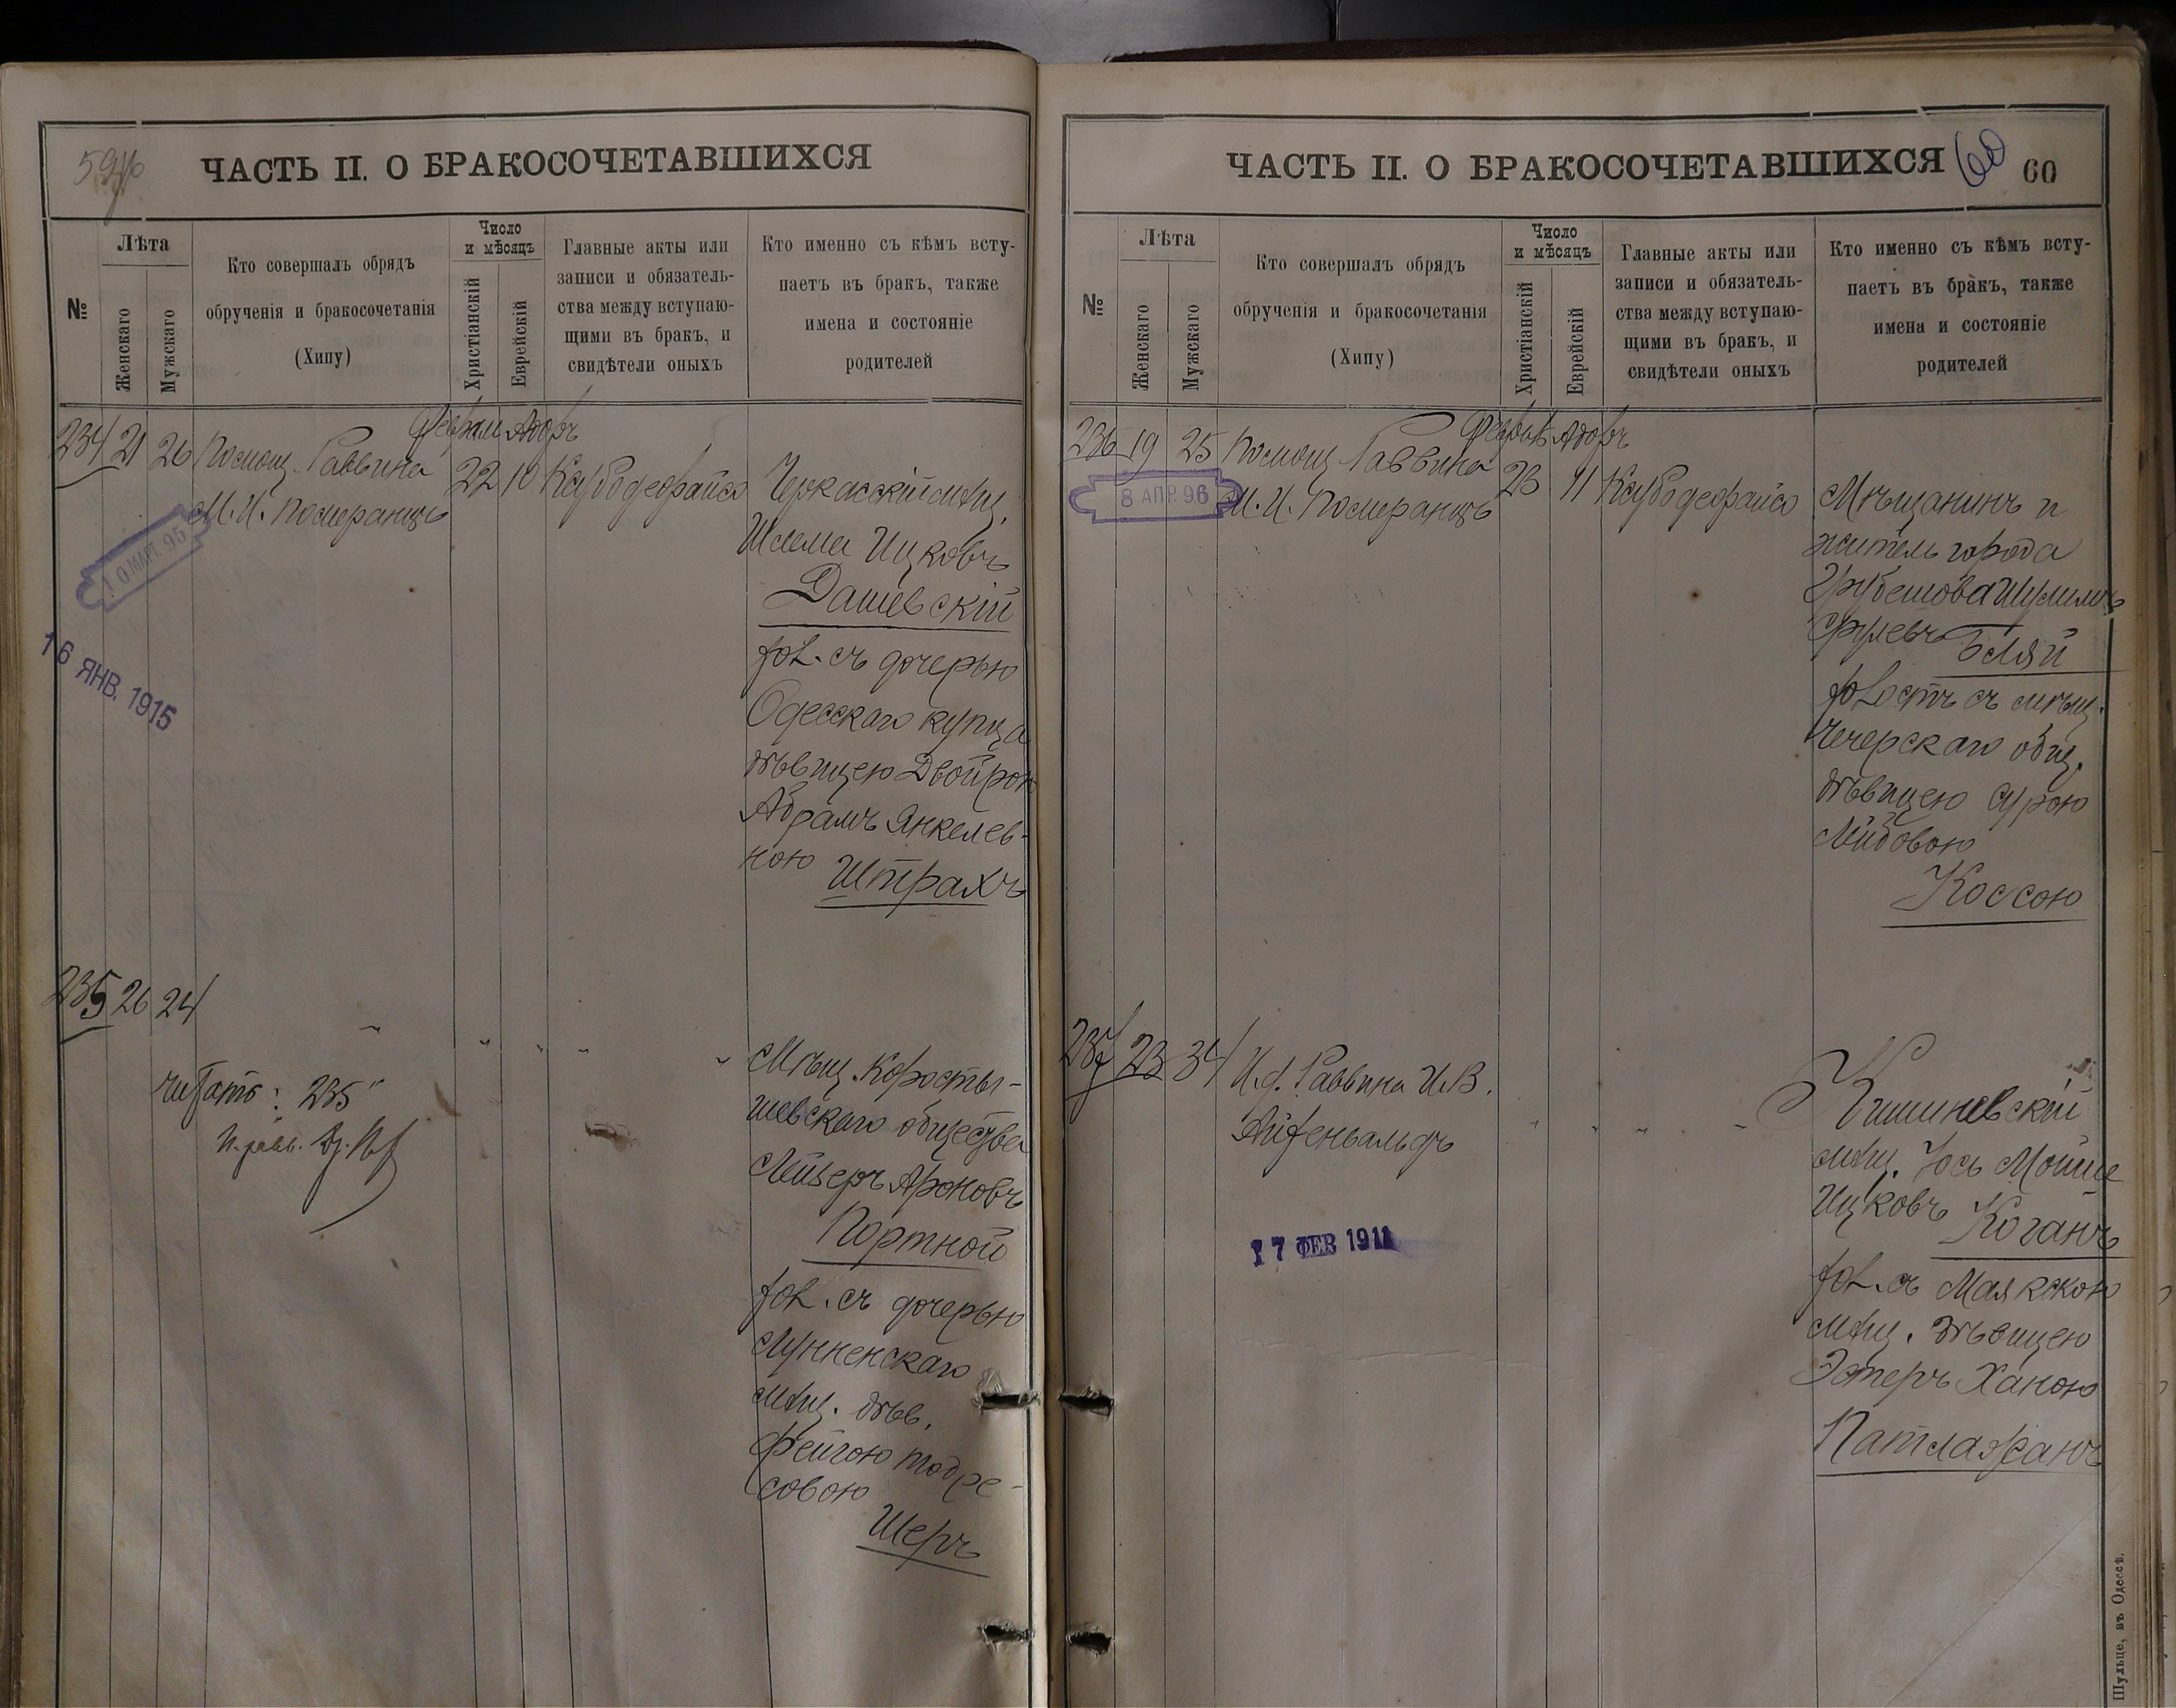 59
ЧАСТЬ II. О БРАКОСОЧЕТАВШИХСЯ
№
Лѣта
Женскаго
Мужскаго
Кто совершалъ обрядъ
обрученія и бракосочетанія
(Хипу)
Число
и мѣсяцъ
Христіанскій
Еврейскій
Главные акты или
записи и обязатель-
ства между вступаю-
щими въ бракъ, и
свидѣтели оныхъ
Кто именно съ кѣмъ всту-
паетъ въ бракъ, также
имена и состояніе
родителей
Февраль Адоръ
234 21 26 Помощ. Раввина 22 10 Ксубодефайсо
М. И. Померанцъ
10 МАРТ. 95
16 ЯНВ. 1915
Черкасскій мѣщ.
Шлема Ицковъ
Дашевскій
хол. съ дочерью
Одесскаго купца
дѣвицею Двойрою
Абрамъ Янкелев-
ною Штрахъ
235 26 24 " " " " "
читать: 235"
Мѣщ. Коросты-
шевскаго общества
Лейзеръ Ароновъ
Портной
хол. съ дочерью
Лунненскаго
мѣщ. дѣв.
Фейгою Тодре-
совою
Шеръ
ЧАСТЬ II. О БРАКОСОЧЕТАВШИХСЯ
60
60
№
Лѣта
Женскаго
Мужскаго
Кто совершалъ обрядъ
обрученія и бракосочетанія
(Хипу)
Число
и мѣсяцъ
Христіанскій
Еврейскій
Главные акты или
записи и обязатель-
ства между вступаю-
щими въ бракъ, и
свидѣтели оныхъ
Кто именно съ кѣмъ всту-
паетъ въ бракъ, также
имена и состояніе
родителей
Февраль Адоръ
236 19 25 Помощ. Раввина 23 11 Ксубодефайсо
М. И. Померанцъ
8 АПР. 96
Мѣщанинъ и
житель города
Грубешова Шулимъ
Срулевъ Бляй
холостъ съ мѣщ.
Чечерскаго общ.
дѣвицею Сурою
Лейбовою
Коссою
237 23 34 И. д. Раввина И. В. " " " "
Айхенвальдъ
17 ФЕВ 1911
Кишиневскій
мѣщ. Іось Мойше
Ицковъ Коганъ
хол. съ Маякскою
мѣщ. дѣвицею
Эстеръ Ханою
Патлажанъ
Шульце, въ Одессѣ.